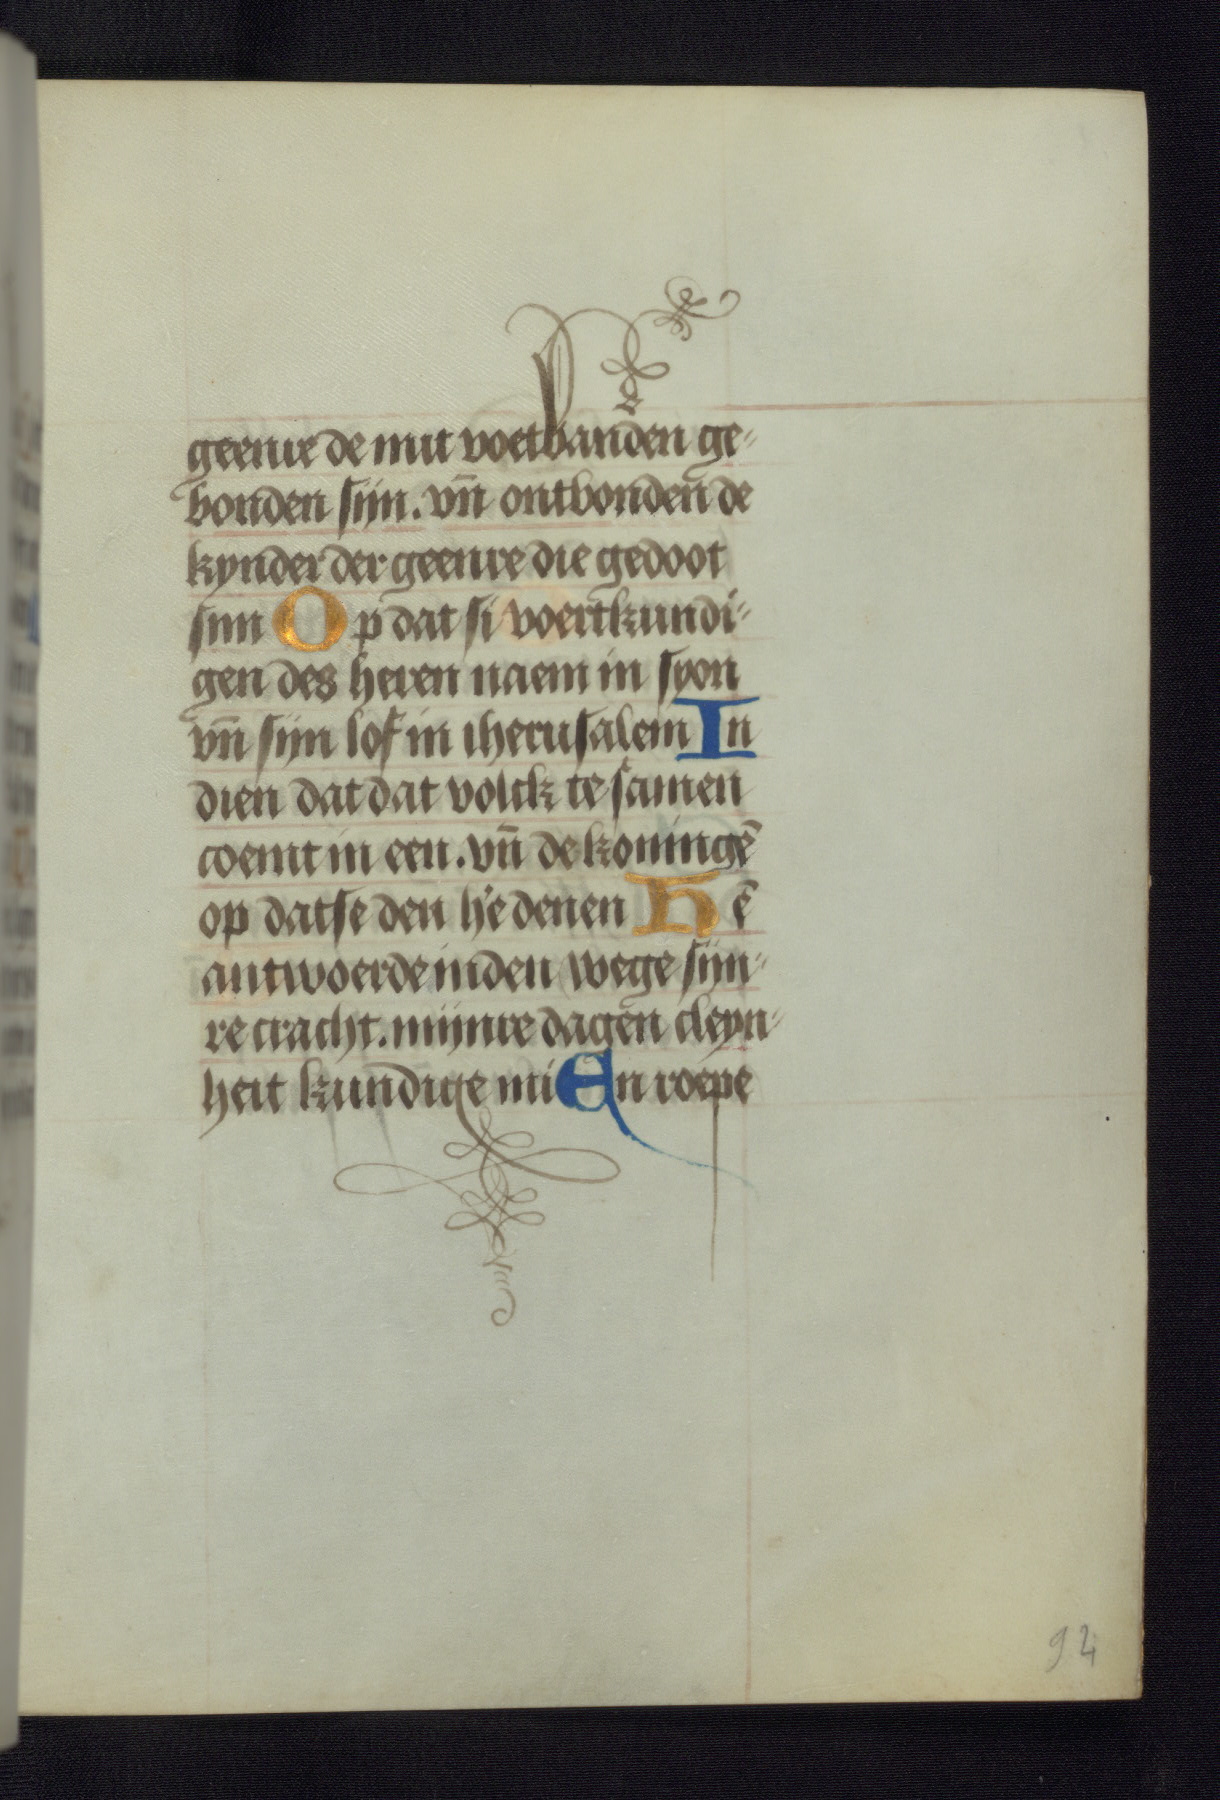 geenre de mit voetbanden ge-
bonden sijn. vn̄ ontbonden de
kynder der geenre die gedoot
sijn Op dat si voertkundi-
gen des heren naem in syon
vn̄ sijn lof in iherusalem In
dien dat dat volck te samen
coemt in een. vn̄ de koningē
op datse den h'e denen Hē
antwoerde in den wege sijn-
re cracht. mijnre dagen cleyn-
heit kundige mi En roepe
94